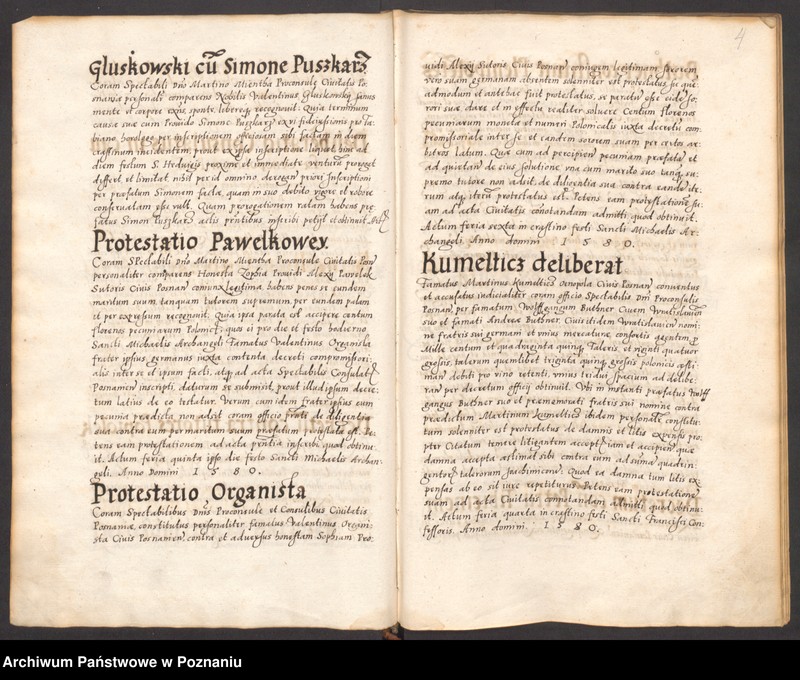 Gluskowski cũ Simone Puszkarz
Coram Spectabili Dno Martino Mientha Proconsule Civitatis Po-
snaniæ personali comparens Nobilis Valentinus Gluskowsky, sanus
mente et corpore exis. spontè libereq; recognouit. Quia terminum
causa suæ cum Prouido Simone Puszkarz ex vi fideiussionis pro Fa-
biano horologo per inscriptionem officiosam sibi factam in diem
crastinum incidentem, prout ex ipsa inscriptione liquet, hinc ad
diem festum S. Heduigis proximè et immediatè venturũ prorogat
differt et limitat nihil per id omnino derogan priori Inscriptioni
per præfatum Simonem factæ, quam in suo debito vigore et robore
conseruatam esse vult. Quam prorogationem ratam habens præ-
fatus Simon Puszkarz actis præntibus inscribi petijt et obtinuit.
Protestatio Pawelkowey.
Coram Spectabili Dno Martino Mientha Proconsule Ciuitatis Posn
personaliter comparens Honesta Zophia Prouidi Alexij Pawelek
Sutoris Ciuis Posnan coniunx legitima, habens penes se eundem
maritum suum, tanquam tutorem supremum, per eundem palam
et per expressum recognouit. Quia ipsa parata est accipere centum
florenos pecuniarum Polonict, quos ei pro die et festo hodierno
Sancti Michaelis Archangeli Famatus Valentinus Organista
frater ipsius germanus iuxta contenta decreti compromissori-
alis inter se et ipsum facti, atq; ad acta Spectabilis Consulatus
Posnanien inscripti, daturum se submisit, prout illud ipsum decre-
tum latius de eo testatur. Verum cum idem frater ipsius cum
pecunia prædicta non adsit coram officio pñti de diligentia
sua contra eum per maritum suum præfatum protestata est. Pe-
tens eam protestationem ad acta præntia inscribi, quod obtinu-
it. Actum feria quinta ipso die festo Sancti Michaelis Archan-
geli. Anno Domini 1580.
Protestatio Organista
Coram Spectabilibus Dnis Proconsule et Consulibus Ciuitatis
Posnaniæ, constitutus personaliter famatus Valentinus Organi-
sta Ciuis Posnanien, contra et aduersus honestam Sophiam Pro-
4
uidi Alexij Sutoris Ciuis Posnan coniugem legitimam, sororem
vero suam germanam absentem solenniter est protestatus, se que-
admodum et antehac fuit protestatus, se paratũ esse eide so-
rori suæ dare et in effectu realiter soluere Centum florenos
pecuniarum moneta et numeri Polonicalis iuxta decretu com-
promissoriale inter se et eandem sororem suam per certos ar-
bitros latum. Quæ cum ad percipiem pecuniam præfatã et
ad quietan de eius solutione vna cum marito suo tanq; su-
premo tutore non adsit, de diligentia sua contra eande ite-
rum atq; iterũ protestatus est. Petens eam protestatione su-
am ad acta Ciuitatis conotandam admitti, quod obtinuit.
Actum feria sexta in crastino festi Sancti Michaelis Ar-
changeli. Anno domini 1580.
Kumelticz deliberat
Famatus Martinus Kumelticz Oenopola Ciuis Posnan conuentus
et accusatus iudicialiter coram officio Spectabilis Dni Proconsulis
Posnan, per famatum Wolffgangum Buthner Ciuem Wratislauien
suo et famati Andreæ Buthner, Ciuis itidem Wratislauien nomi-
ne fratris sui germani et vnius mercaturæ consortis agentem p
Mille centum et quadraginta quinq; Taleris, et viginti quatuor
grossis, talerum quemlibet triginta quinq; grossis polonicis æsti-
man debiti pro vino restanti, vnius tridui spacium ad delibe-
ran per decretum officij obtinuit. Vbi in instanti præfatus Wolff
gangus Buthner suo et præmemorati fratris sui nomine contra
prædictum Martinum Kumelticz ibidem personalr constitu-
tum solenniter est protestatus de damnis et litis expensis pro-
pter Citatum temere litigantem acceptis iam et accipien, quæ
damna accepta æstimat sibi contra eum ad summã quadrin-
gentorũ talerorum Joachimicoru. Quod ea damna tum litis ex-
pensas ab eo sit iure repetiturus. Petens eam protestatione
suam ad acta Ciuitatis connotandam admitti, quod obtinu-
it. Actum feria quarta in crastino festi Sancti Francisci Con-
fessoris. Anno domini. 1580.
Archiwum Państwowe w Poznaniu